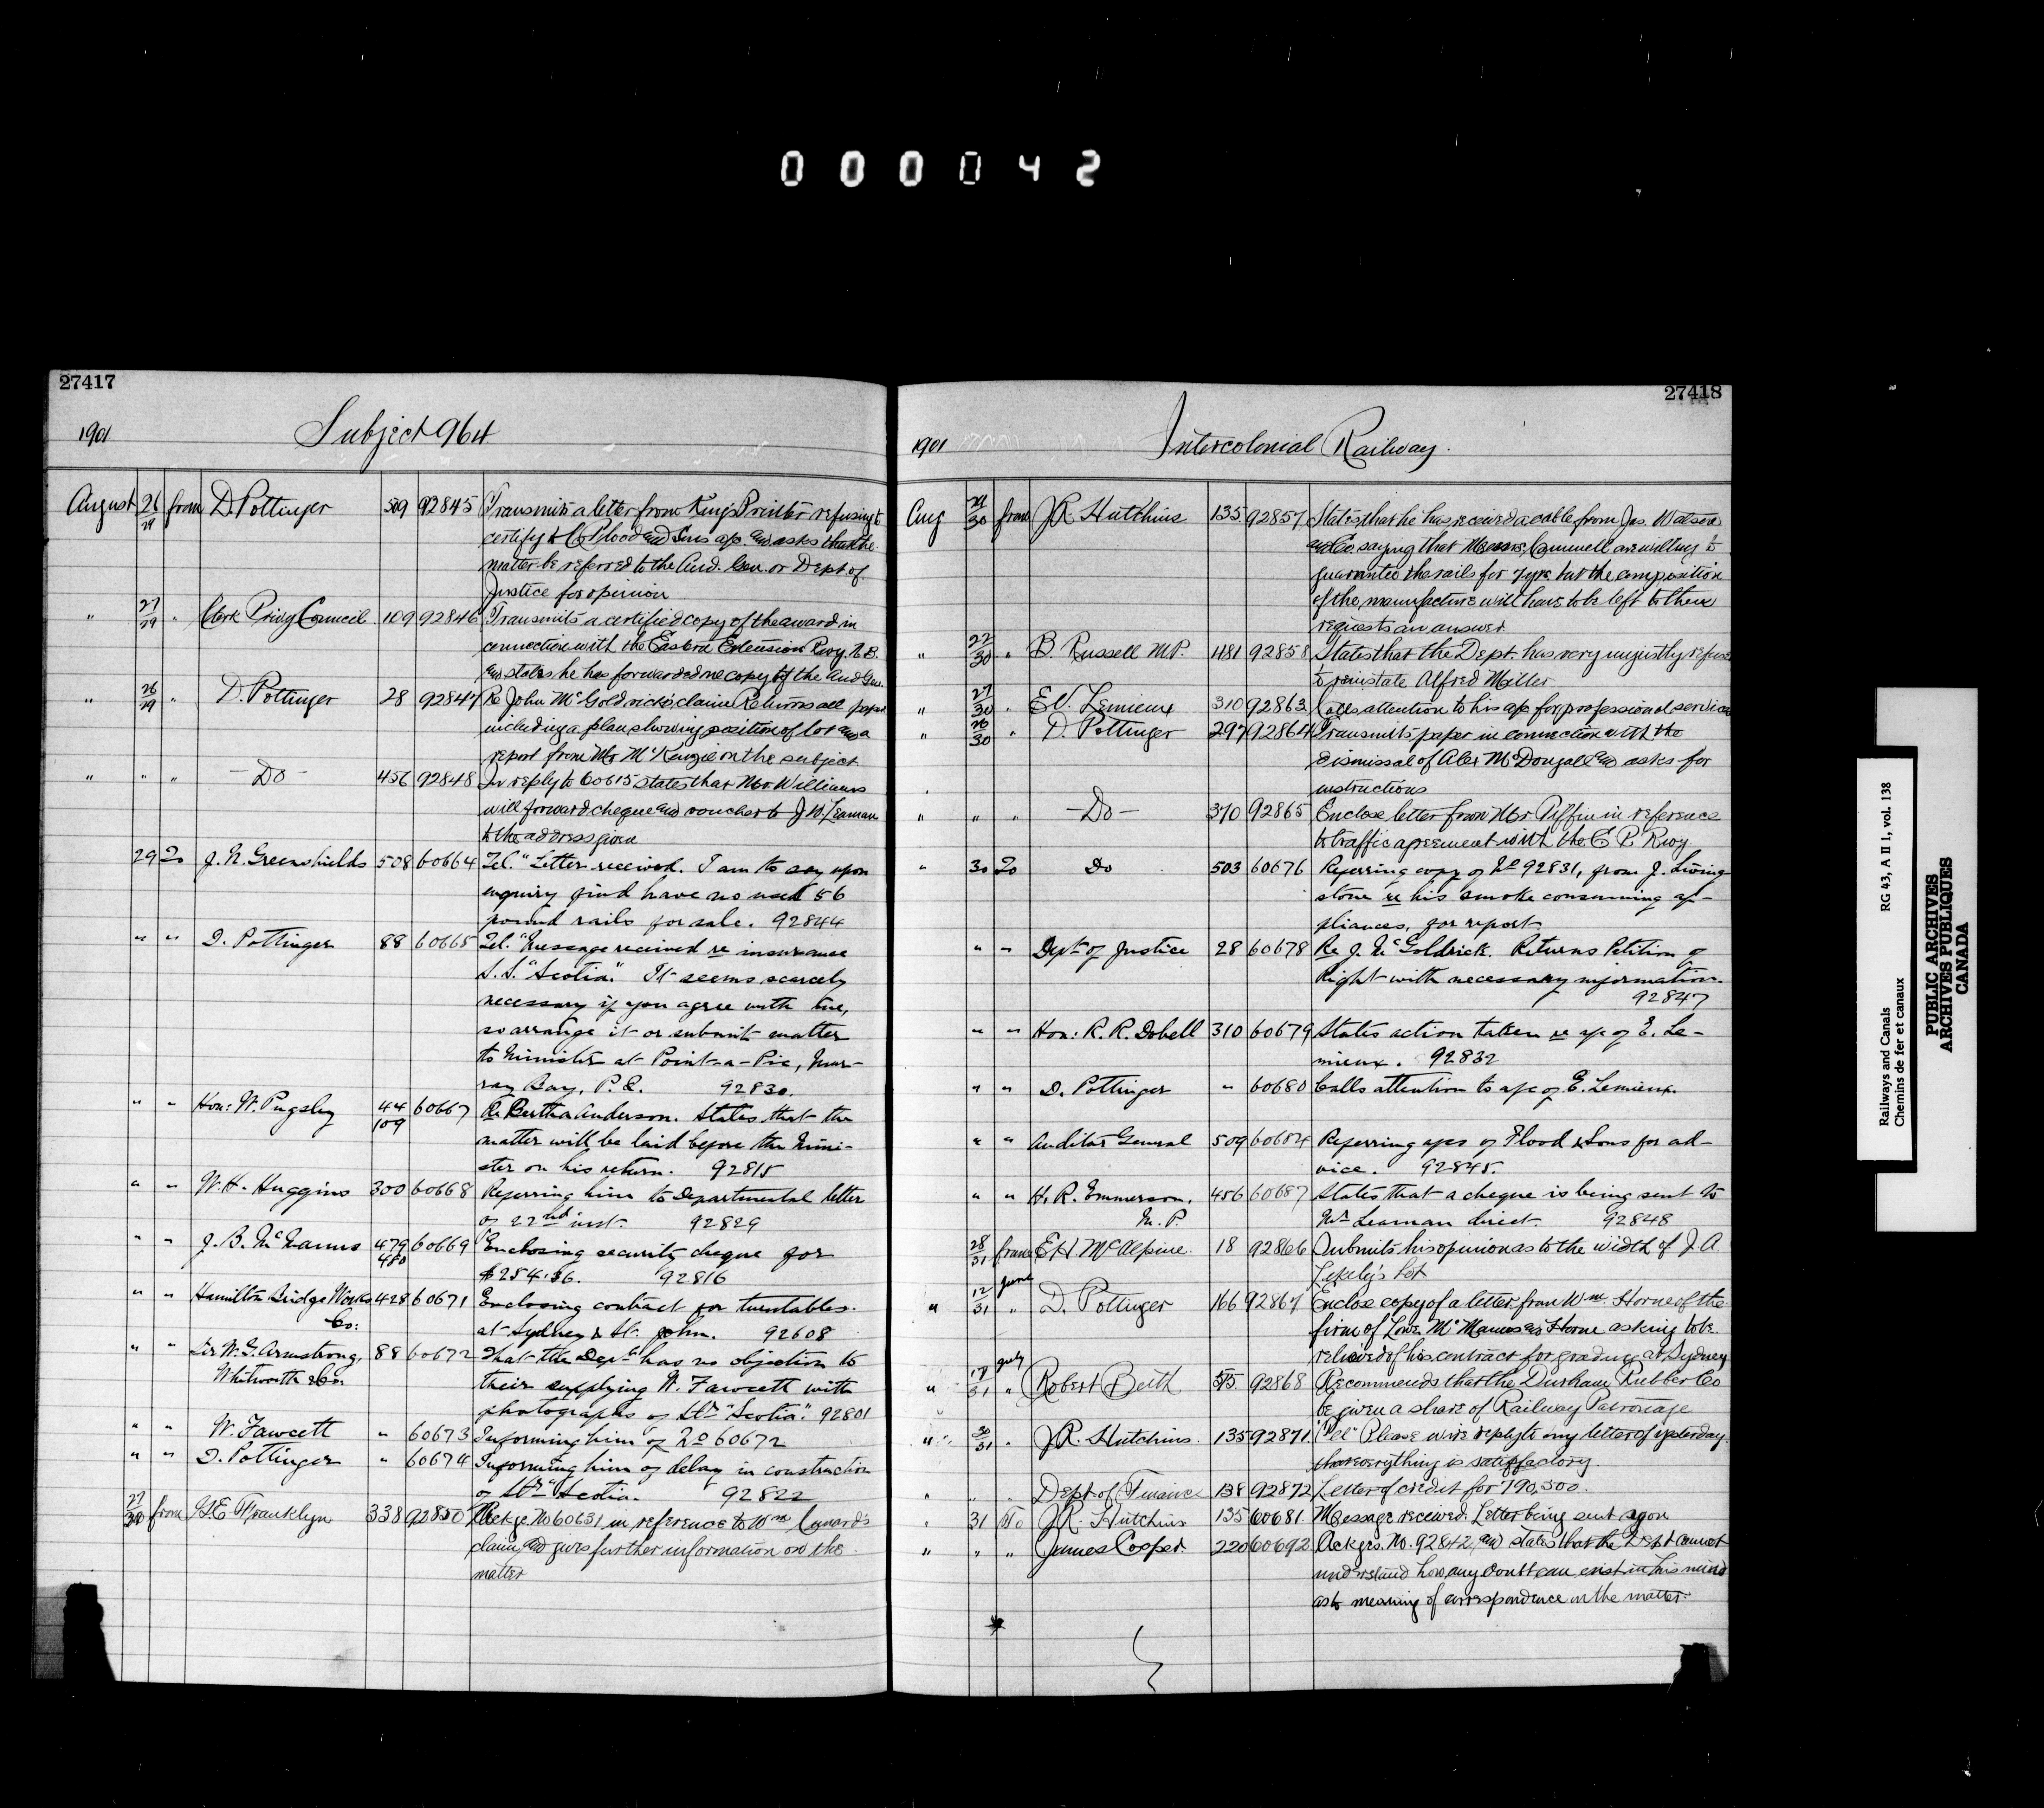 000042
27417
1901 Subject 964
August 26/29 from D. Pottinger 509 92845 Transmits a letter from King's Printer refusing to
certify to C. Flood and Sons a/c. and asks that the
matter be referred to the Aud. Gen. or Dept of
Justice for opinion
" 27/29 " Clerk Privy Council 109 92846 Transmits a certified copy of the award in
connection with the Eastern Extension Rwy. N.B.
and states he has forwarded one copy to the Aud Gen.
" 26/29 " D. Pottinger 28 92847 Re John McGoldrick's claim Returns all papers
including a plan showing position of lot and a
report from Mr McKenzie on the subject
" " " — Do — 456 92848 In reply to 60615 states that Mr Williams
will forward cheque and voucher to J W. Leaman
to the address given
29 To J. N. Greenshields 508 60664 Tel. "Letter received. I am to say upon
enquiry find have no used 56
pound rails for sale. 92844
" " D. Pottinger 88 60665 Tel. "Message received re insurance
S.S. "Scotia". It seems scarcely
necessary if you agree with me,
so arrange it or submit matter
to Minister at Point-a-Pic, Mur-
ray Bay, P.Q. 92830.
" " Hon: W. Pugsley 44/109 60667 Re Bertha Anderson. States that the
matter will be laid before the Mini-
ster on his return. 92815
" " W. H. Huggins 300 60668 Referring him to Departmental letter
of 22nd inst. 92829
" " J. B. McManus 479/480 60669 Enclosing security cheque for
$254.56. 92816
" " Hamilton Bridge Works 428 60671 Enclosing contract for turntables
Co: at Sydney & St. John. 92608
" " Sir W. G. Armstrong, 88 60672 That the Dept has no objection to
Whitworth & Co: their supplying W. Fawcett with
photographs of Str "Scotia". 92801
" " W. Fawcett " 60673 Informing him of No 60672
" " D. Pottinger " 60674 Informing him of delay in construction
of Str "Scotia. 92822
27/30 from G E Francklyn 338 92850 Ackge. No 60631 in reference to Wm Cunard's
claim, and gives further information on the
matter
27418
1901 Intercolonial Railway.
Aug 29/30 from J R Hutchins 135 92857 States that he has received a cable from Jas. Watson
and Co. saying that Messrs. Cammell are willing to
guarantee the rails for 7 yrs. but the composition
of the manufacture will have to be left to them
requests an answer
" 22/30 " B. Russell M.P. 481 92858 States that the Dept. has very unjustly refused
to reinstate Alfred Miller
" 27/30 " E V. Lemieux 310 92863 Calls attention to his a/c for professional services
" 28/30 " D. Pottinger 297 92864 Transmits paper in connection with the
dismissal of Alex McDougall and asks for
instructions
" " " — Do — 370 92865 Enclose letter from Mr. Tiffin in reference
to traffic agreement with the C. P. Rwy
" 30 To Do 503 60676 Referring copy of No 92831, from J. Living-
stone re his smoke consuming ap-
pliances, for report
" " Dept of Justice 28 60678 Re J. McGoldrick. Returns Petition of
Right with necessary information.
92847
" " Hon: R. R. Dobell 310 60679 States action taken re a/c of E. Le-
mieux. 92832
" " D. Pottinger " 60680 Calls attention to a/c of E. Lemieux.
" " Auditor General 509 60684 Referring a/cs of Flood & Sons for ad-
vice. 92845.
" " H. R. Emmerson, 456 60687 States that a cheque is being sent to
M. P. Mr Leaman direct. 92848
28/31 from E H McAlpine 18 92866 Submits his opinion as to the width of J. A
lot
" 12 June/31 " D. Pottinger 166 92867 Enclose copy of a letter from Wm. Horne of the
firm of Lowe McManus and Horne asking to be
relieved of his contract for grading at Sydney
" 17 July/31 " Robert Beith 515. 92868 Recommends that the Durham Rubber Co
be given a share of Railway Patronage
" 30/31 " J. R. Hutchins. 135 92871 "Tel" Please wire reply to my letter of yesterday.
that everything is satisfactory.
" " " Dept of Finance 138 92872 Letter of credit for 790,500.
" 31 To J. R. Hutchins 135 60681. Message received. Letter being sent
" " " James Cooper 220 60692 Ackges. No. 92842, and states that the Dept cannot
understand how any doubt can exist in his mind
as to meaning of correspondence in the matter.
PUBLIC ARCHIVES
ARCHIVES PUBLIQUES
CANADA
Railways and Canals RG 43, A II 1, vol. 138
Chemins de fer et canaux